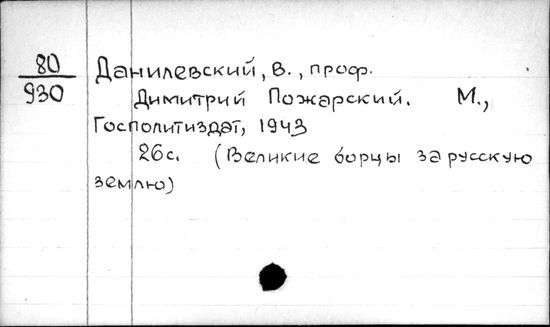 80 Данилевский, В., проф.
930 Димитрий Пожарский. М.,
Госполитиздат, 1943
26с. (Великие борцы за русскую
землю)